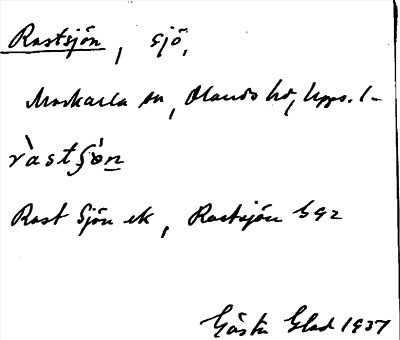 Rastsjön, sjö,
Morkarla sn, Olands hd, Upps. l-
ràstʃö́n
Rast Sjön ek, Rastsjön
Gösta Glad 1937